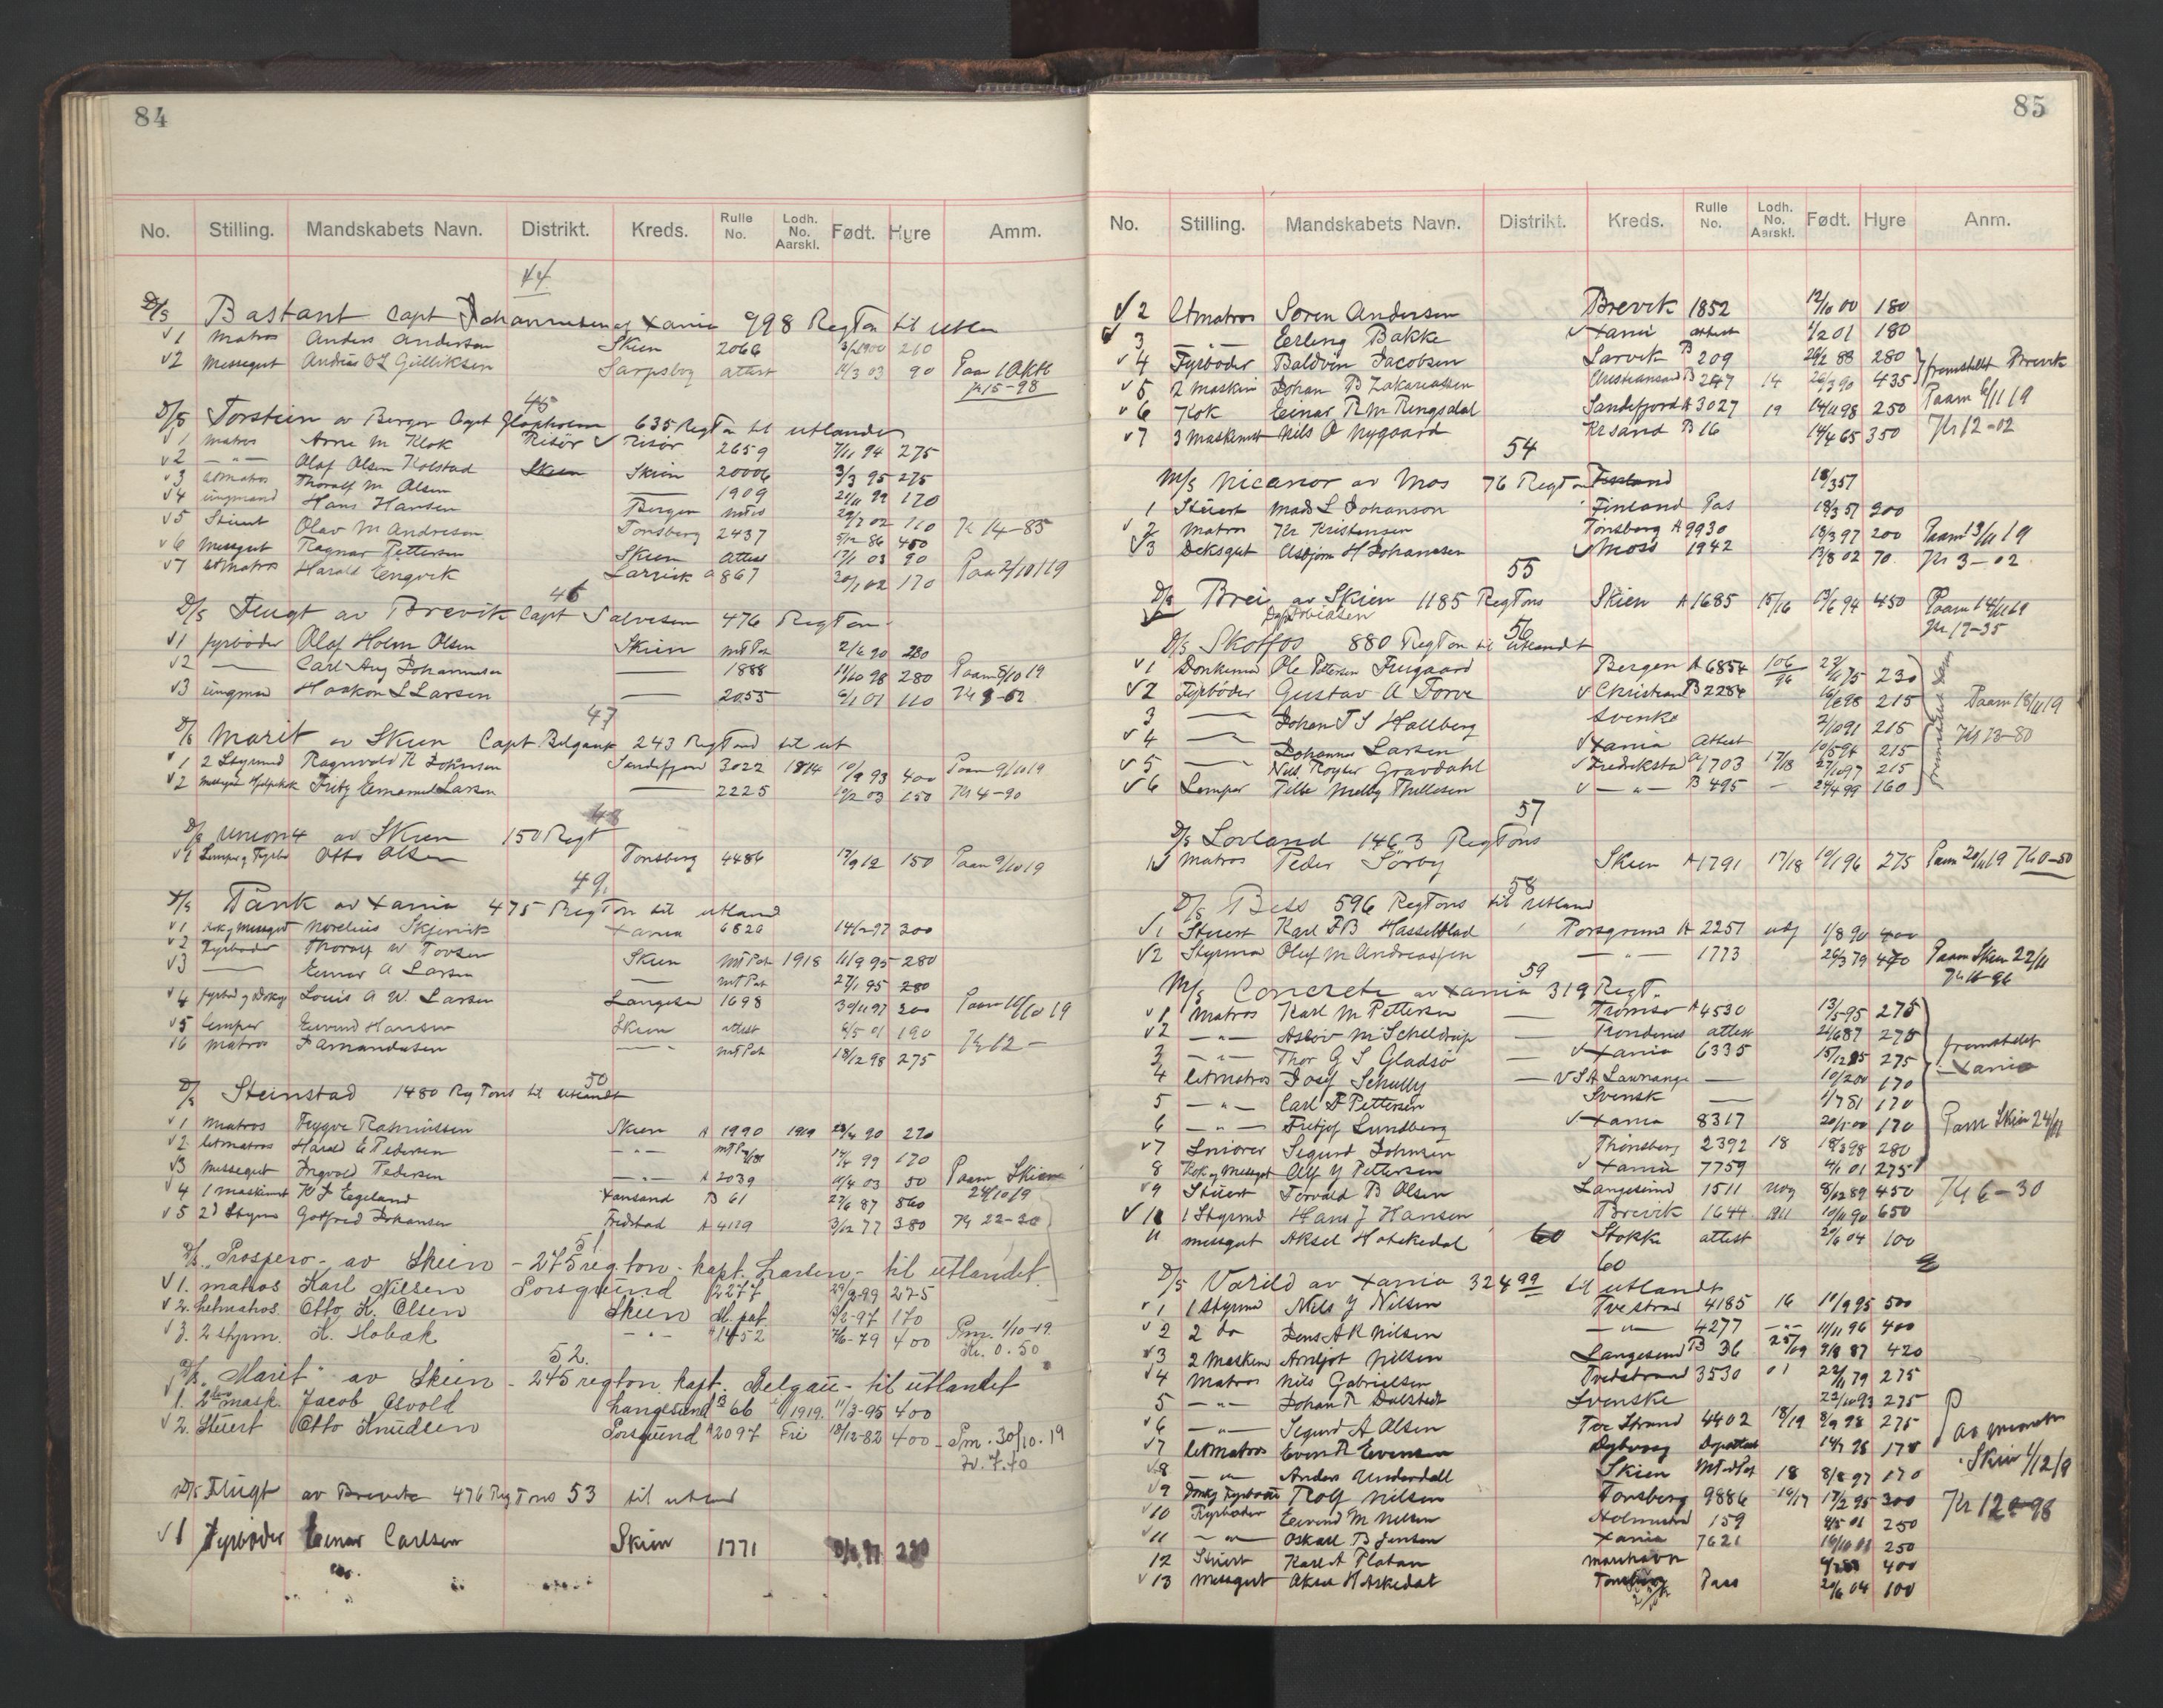 84
No. Stilling. Mandskabets Navn. Distrikt. Kreds. Rulle No. Lodh. No. Aarskl. Født. Hyre Amm.
44
D/s Bastant Capt Johannesen af Xania 998 RegTon til utlan
v1 Matros Anders Andersen Skien 2066 3/2 1900 210
v2 Messegut Andreas O L Gulliksen Sarpsbg attest 11/3 03 90 Paam 1 Okt
Kr 15-98
45
D/s Torstein av Bergen Capt 635 RegTon til utlandet
v1 Matros Arne M Klok Risör v Risör 2659 7/11 94 275
v2 -"- Olaf Olsen Kolstad Skien Skien 20006 3/3 95 275
v3 Letmatros Thoralf M Olsen 1909 21/11 99 170
v4 ungmand Hans Hansen Bergen 29/7 02 110
v5 Stuert Olav M Andresen Tonsberg 2437 5/12 86 450 Kr 14-85
v6 Messegut Ragnar Pettersen Skien Attest 17/1 03 90
v7 Letmatros Harald Engvik Larvik a 867 20/1 02 170 Paa 2/10 19
46
D/s Flugt av Brevik Capt Salvesen 476 RegTon
v1 fyrböder Olaf Holm Olsen Skien mt Pat 2/6 90 280
v2 Carl Aug Johannesen 1888 11/10 98 280 Paam 8/10 19
v3 ungman Haakon L Larsen 2055 6/1 01 110 Kr 8-62
47
D/s Marit av Skien Capt Belgau 243 RegTond til ut
v1 2 Styrmd Ragnvald R Johnsen Sandefjord 3022 1814 10/9 93 400 Paam 9/10 19
v2 Fritz Emanuel Larsen 2225 10/2 03 150 Kr 4-90
48
D/s Union 4 av Skien 150 Regt
v1 Lemper og Fyrbö Otto Olsen Tonsberg 4486 17/9 12 150 Paam 9/10 19
49.
D/s Tank av Xania 475 RegTon til utland
v1 Kok og Messegut Norelius Skjervik Xania 6826 14/2 97 300
v2 Fyrböder Thoralf W Torsen Skien mt Pat 1918 11/9 95 280
v3 Einar A Larsen mt Pat 27/1 95 280
v4 Louis A W Larsen Langesu 1698 30/11 97 300 Paam 10/10 19
v5 Lemper Eivind Hansen Skien attest 6/5 01 190
v6 Matros J Amandusen mt Pat 18/12 98 275 Kr 12-
50
D/s Steinstad 1480 RegTons til utlandt
v1 Matros Trygve Rasmussen Skien A 1990 1919 23/4 90 270
v2 Letmatros Harald E Pedersen -"- mt Pat 99 170
v3 Messegut Ingvald Pedersen -"- A 2039 11/4 03 50 Paam Skien
v4 1 Maskinist K J Egeland Xansand B 61 27/6 87 560 24/10 19
v5 2d Styrm Gotfred Johansen Fredstad A 4119 3/12 77 380 Kr 22-20
51
D/s. "Prospero" av Skien - 275 reg.ton - kapt. Larsen, - til utlandet.
v1. matros Karl Nilsen Porsgrund 2277 29/2-99 275
v2. Letmatros. Otto K. Olsen Skien M.pat. 3/2-97 170
v3. 2 styrm. K. Hobæk -"- A 1452 7/6-79 400 Pm. 1/10-19.
Kr. 0.50
52.
D/s. "Marit" av Skien - 245 regton kapt. Belgau - til utlandet
v1. 2den mask. Jacob Osvold Langesund B 66 1919. 11/3-95 400
v2. Stuert Otto Knudsen Porsgrund A 2097 Fri 18/12-82 400 - Pm. 30/10.19
Kr. 7.70
D/s Flugt av Brevik 476 RegTons 53 til utland
v1 Fyrböder Einar Carlsen Skien 1771 97 280
85
No. Stilling. Mandskabets Navn. Distrikt. Kreds. Rulle No. Lodh. No. Aarskl. Født. Hyre Anm.
v2 Letmatros Soren Andersen Brevik 1852 12/11 00 180
v3 -"- Erling Bakke v Xania attest 1/2 01 180
v4 Fyrböder Baldvin Jacobsen Larvik B 209 26/2 88 280 fremstillet Brevik
v5 2 Maskin Johan B Zakariassen Christiansand B 247 14 26/3 90 435
v6 Kok Einar R M Ringsdal Sandefjord A 3027 19 14/11 98 250 Paam 6/11 19
v7 3 Maskinist Nils O Nygaard Krsand B 16 14/4 65 350 Kr 12-02
54
M/s Nicanor av Mos 76 RegTon Finland 18/3 57
1 Stuert Mads L Johanson Finland Pas 18/3 57 200
v2 Matros Kr Kristensen Tonsberg A 9930 13/3 97 200 Paam 13/11 19
v3 Deksgut Asbjörn H Johansen v Moss 1942 13/8 02 70 Kr 3-02
55
D/s Brei av Skien 1185 RegTons Skien A 1685 15/16 13/6 94 450 Paam 14/11 19
Kr 17-35
56
D/s Skotfos 880 RegTon til utlandt
v1 Donkeman Ole Petersen Furgaard Bergen A 6854 106/96 23/11 75 230
v2 Fyrböder Gustav A Torve v Christian B 2284 16/2 98 215 Paam 18/11 19
3 Johan T S Hallberg Svenke 2/10 91 215
v4 Johannes Larsen v Xania Attest 10/5 94 215 Kr 23-80
v5 Nils Royter Gravdahl v Fredrikstad a 1703 17/18 27/10 97 215
v6 Lemper Pelle Melby Thellesen v -"- B 495 - 24/4 99 160
57
D/s Lovland 1463 RegTons
1v Matros Peder Sörby Skien A 1791 17/18 19/1 96 275 Paam 20/11 19 Kr 0-50
58
D/s Bess 596 RegTons til Utland
v1 Stuert Karl F B Hasselblad Porsgrund A 2257 udg 1/8 90 400
v2 Styrman Oluf M Andreassen -"- 1773 26/3 79 470 Paam Skien 22/11
Kr 16-96
59
M/s Concrete av Xania 319 RegT.
v1 Matros Karl M Pettersen Tromsö A 4530 13/5 95 275
v2 -"- Aslov M Scheldrup Trondenes attest 24/6 87 275
3 -"- Thor G S Gladsö v Xania 6335 15/12 85 275 fremstillet
4 Letmatros Josef Schully v S A Lawrange 10/2 00 170 Xania
5 -"- Carl F Pettersen Svensk 1/7 81 170
6 -"- Fritjof Lundberg v Xania 8317 20/1 00 170 Paam Skien 24/11
v7 Smörer Sigurd Johnsen Thönsberg 2392 18 18/3 98 280
8 Kok og Messegut Alf Y Pettersen v Xania 7759 4/1 01 275
v9 Stuert Torvald B Olsen Langesund 1511 udg 8/12 89 450 Kr 6-30
v10 1 Styrmd Hans J Hansen Brevik 1644 1911 10/11 90 650
11 messgut Aksel Hotskedal 60 Stokke attest 20/6 04 100
60
D/s Varild av Xania 324 99 til utlandt
v1 1 Styrmd Nils Y Nilsen Tvestrand 4185 16 11/9 95 500
v2 2 do Jens A R Nilsen -"- 4277 -"- 11/11 96 400
v3 2 Maskin Arnljot Nilsen Langesund B 36 25/09 9/8 87 420
v4 Matros Nils Gabrielsen Tvedstrand 3530 01 22/11 79 275
5 -"- Johan R Dalstedt Svenske 22/10 93 275 P
v6 -"- Sigurd A Olsen Tve Strand 4402 18/19 8/9 98 275
v7 Letmatros Even R Evensen Dybvaag 14/7 98 170
v8 -"- Anders Underdall Skien Mt Pat 18 8/8 97 170 Skien 1/12 19
v9 Donky Fyrböder Rolf Nilsen Tonsberg 9886 16/17 17/2 95 300
v10 Fyrböder Eivind M Nilsen Holmestrand 159 4/5 01 250 Kr 12-98
v11 -"- Oskar B Jensen Xania 7621 250
12 Stuert Karl A Platan 400
v13 Messgut Aksel H Askedal Pass 20/6 04 100